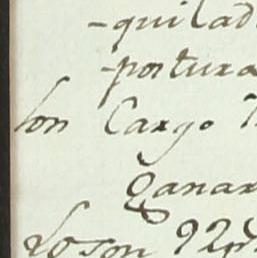 -quilad
-portura
lon Cargo
Ganar
son 92